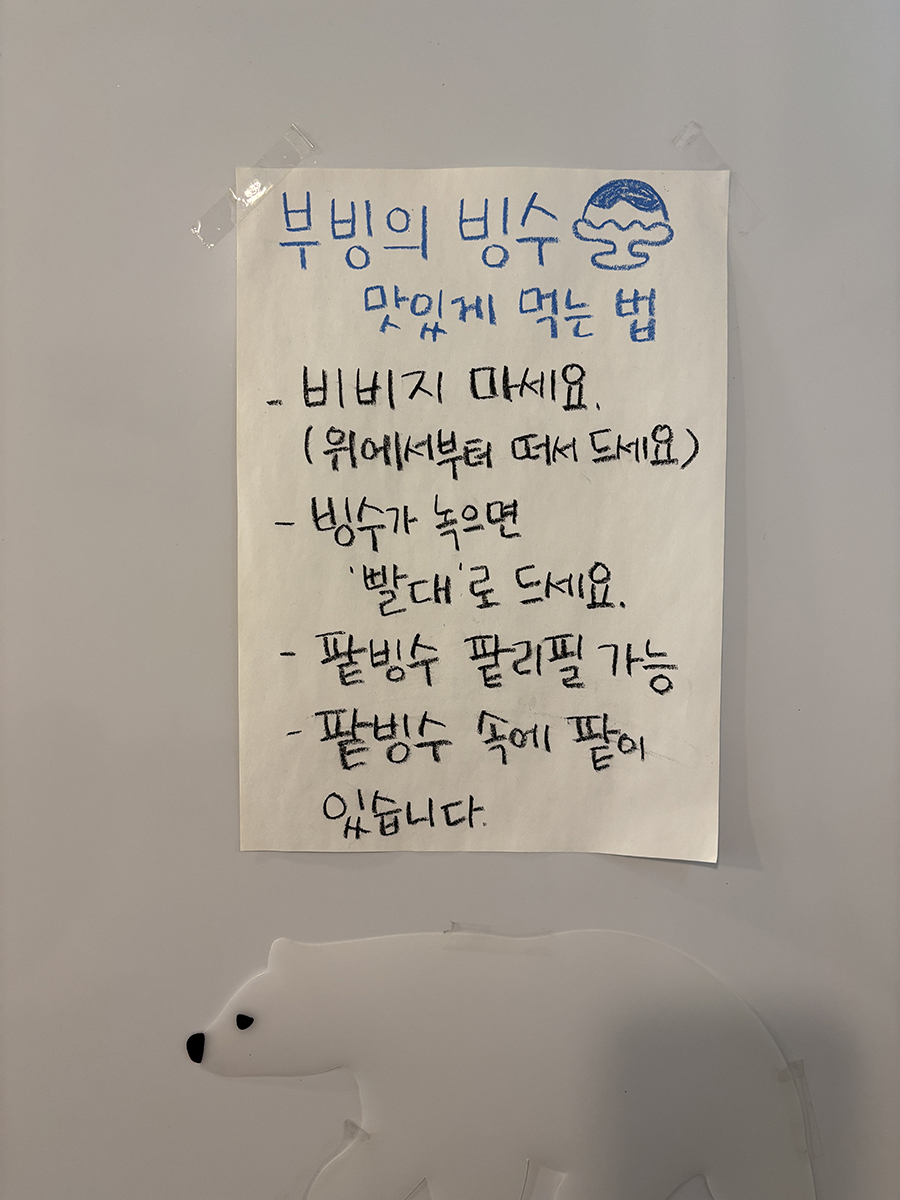 부빙의 빙수
맛있게 먹는 법
- 비비지 마세요.
(위에서부터 떠서 드세요)
- 빙수가 녹으면
'빨대'로 드세요.
- 팥빙수 팥리필 가능
- 팥빙수 속에 팥이
있습니다.